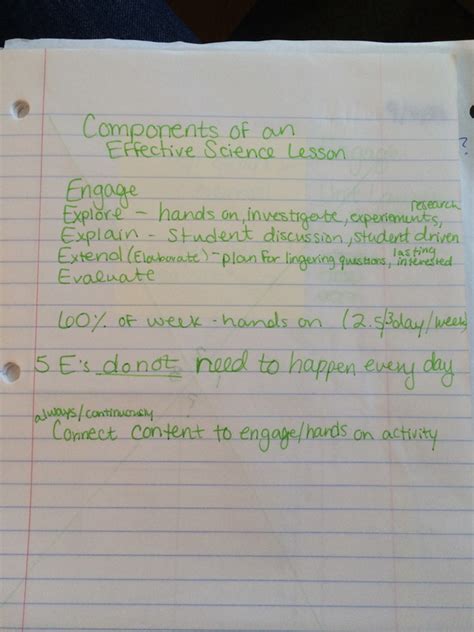 Components of an
Effective Science Lesson
Engage
research
Explore - hands on, investigate, experiements,
Explain - Student discussion, student driven
lasting
Extend (Elaborate) - plan for lingering questions, interested
Evaluate
60% of week - hands on (2.5/3day/week)
5 E's do not need to happen every day
always/continuously
Connect content to engage/hands on activity
?